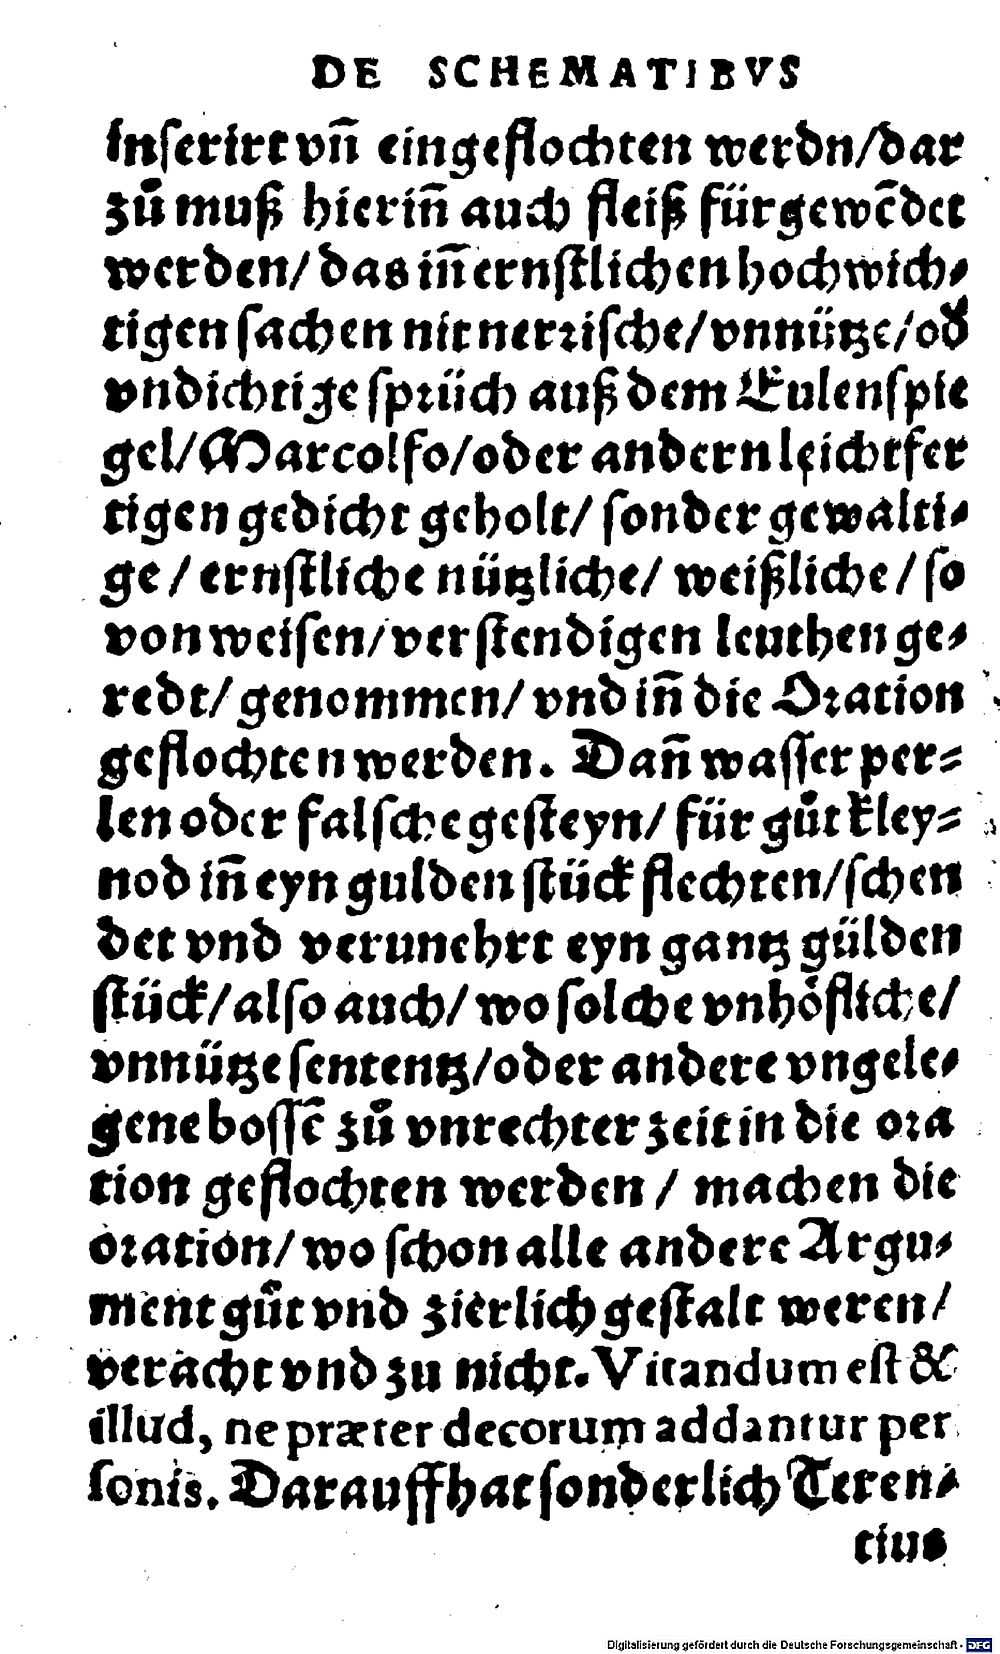 DE SCHEMATIBVS
Inſerirt vn̄ eingeflochten werdn/dar
zů muß hierin̄ auch fleiß fürgewēdet
werden/ das in̄ ernſtlichen hochwich⸗
tigen ſachen nit nerꝛiſche/ vnnütze/ od̕
vndichtige ſpꝛüch auß dem Eulenſpie
gel/ Marcolfo/ oder andern leichtfer
tigen gedicht geholt/ ſonder gewalti⸗
ge / ernſtliche nützliche/ weißliche / ſo
von weiſen/ verſtendigen leuthen ge⸗
redt/ genommen/ vnd in̄ die Oꝛation
geflochten werden. Dan̄ waſſer per⸗
len oder falſche geſteyn/ für gůt kley⸗
nod in̄ eyn gulden ſtück flechten/ſchen
det vnd verunehrt eyn gantz gülden
ſtück/ alſo auch/ wo ſolche vnhöfliche/
vnnütze ſententz/oder andere vngele⸗
gene boſſē zů vnrechter zeit in die oꝛa
tion geflochten werden / machen die
oꝛation/ wo ſchon alle andere Argu⸗
ment gůt vnd zierlich geſtalt weren/
veracht vnd zu nicht. Vitandum eſt &
illud, ne præter decorum addantur per
ſonis. Darauff hat ſonderlich Teren⸗
tius
Digitalisierung gefördert durch die Deutsche Forschungsgemeinschaft - DFG